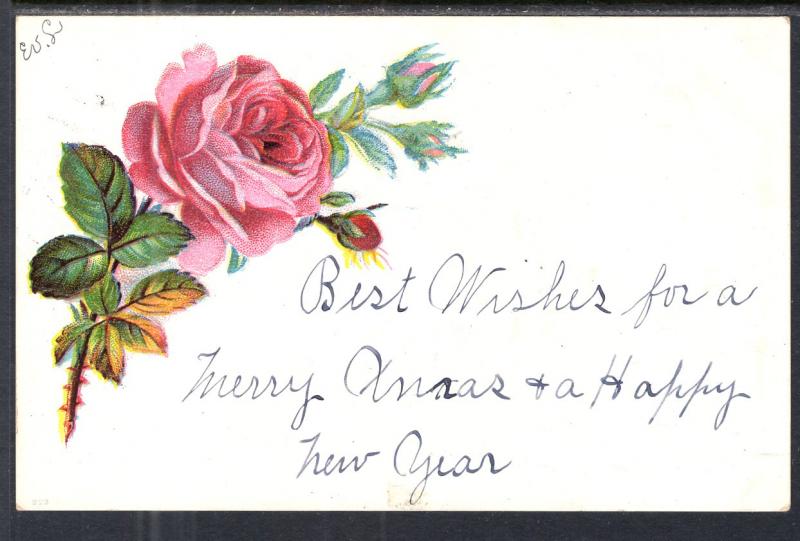 Best Wishes for a
Merry Xmas & a Happy
New Year